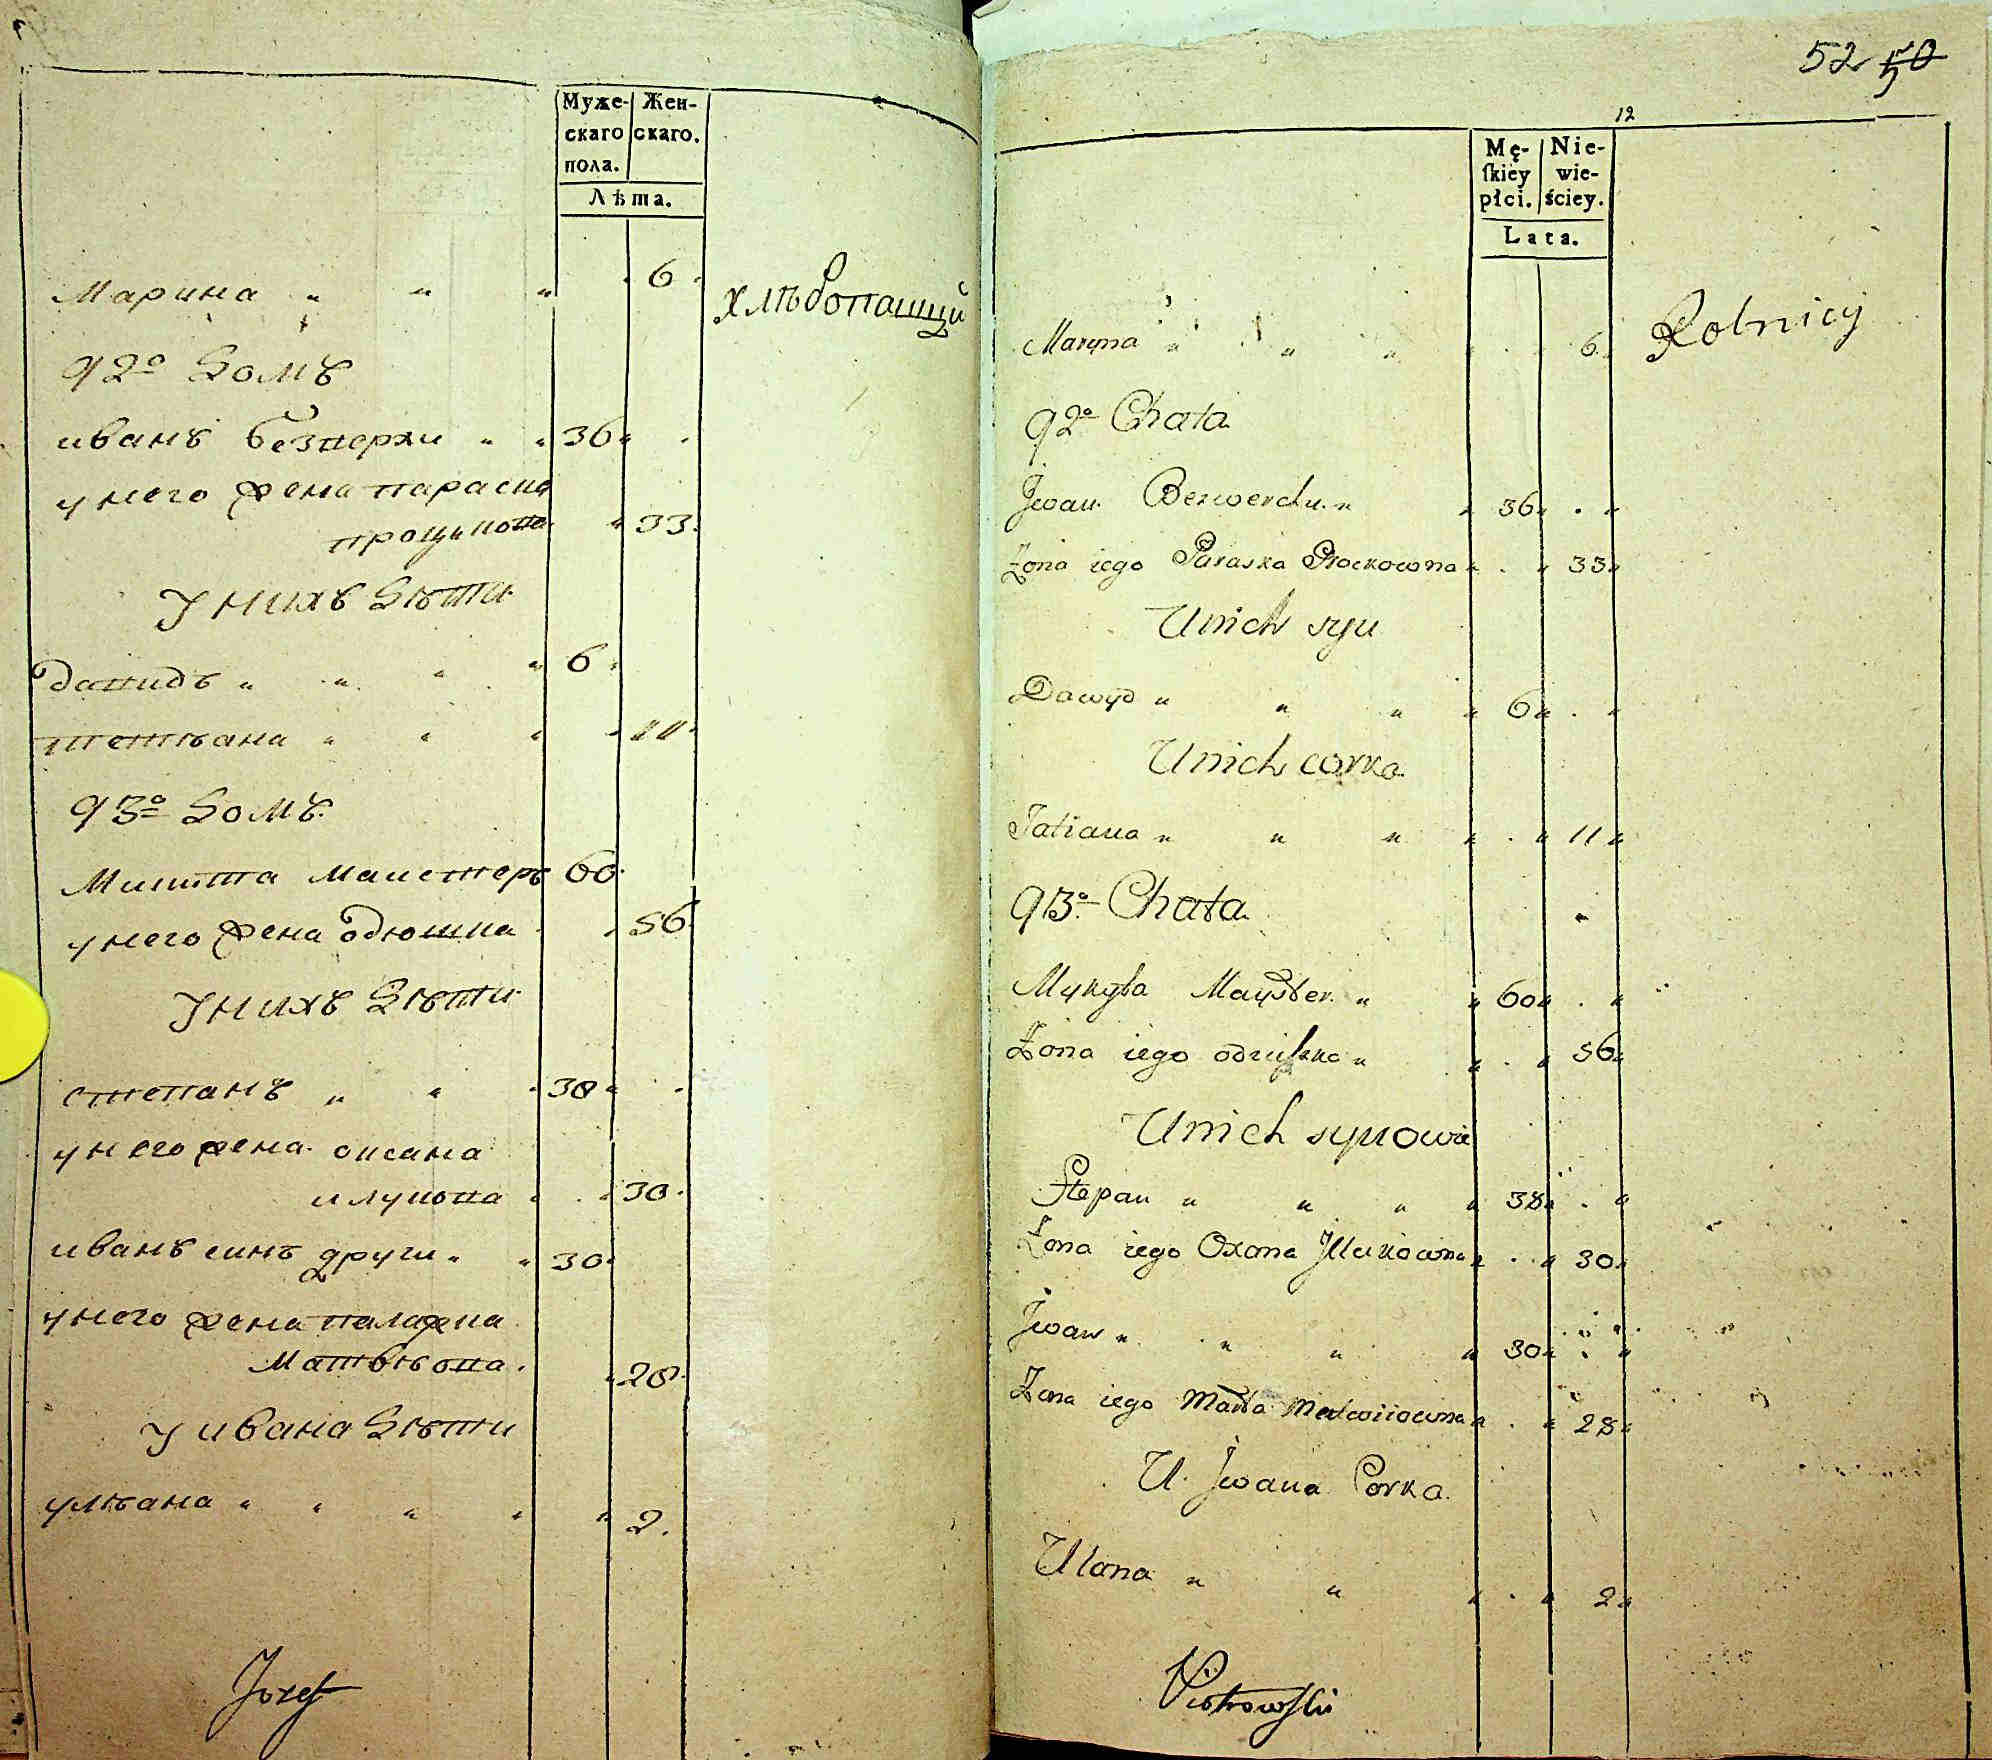 Муже-
скаго
пола.
Жен-
скаго.
Лѣта.
Марина " " " 6
хлѣбопашцй
92º Домъ
иванъ безперхи " " 36
у него жена параска
процикова 33
У нихъ Дѣти
давидъ " " " " 6
тетѣана " " " " 11
93º Домъ
Микита маистеръ 60
у него жена одюшка 56
У нихъ Дѣти
степанъ " " " 38
у него жена оксана
илукова " 30
иванъ синъ други " " 30
у него жена палажка
Матвѣова 28
У ивана Дѣти
улѣана " " " " 2
Jozef
52 50
12
Mę-
skiey
płci.
Nie-
wie-
ściey.
Lata.
Maryna " " " 6
Rolnicy
92º Chata
Jwan Bezwerchu " " 36
Żona iego Paraska Prockowna " " 33
U nich syn
Dawyd " " " " 6
U nich corka
Tatiana " " " " 11
93º Chata
Mykyta Mayster " " 60
Żona iego odziuszka " " 56
U nich synowie
Stepan " " " " 38
Żona iego Oxana Jllukowna " " 30
Jwan " " " " 30
Żona iego Matwiiowna " " 28
U Jwana Corka
Ulana " " " " 2
Piotrowski